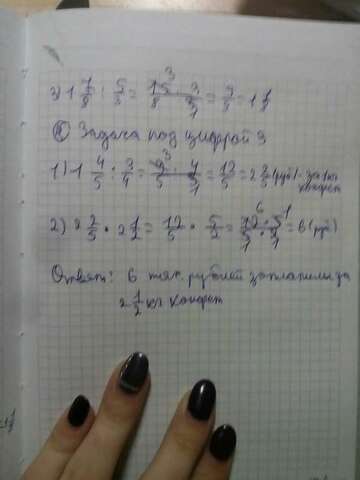 3) 1 7/8 : 5/3 = 15 · 3 / 8 · 5 = 9/8 = 1 1/8
Задача под цифрой 3
1) 1 4/5 : 3/4 = 9 · 4 / 5 · 3 = 12/5 = 2 2/5 (руб) - за 1 кг конфет
2) 2 2/5 · 2 1/2 = 12/5 · 5/2 = 12 · 5 / 5 · 2 = 6 (руб)
Ответ: 6 тыс. рублей заплатили за
2 1/2 кг конфет